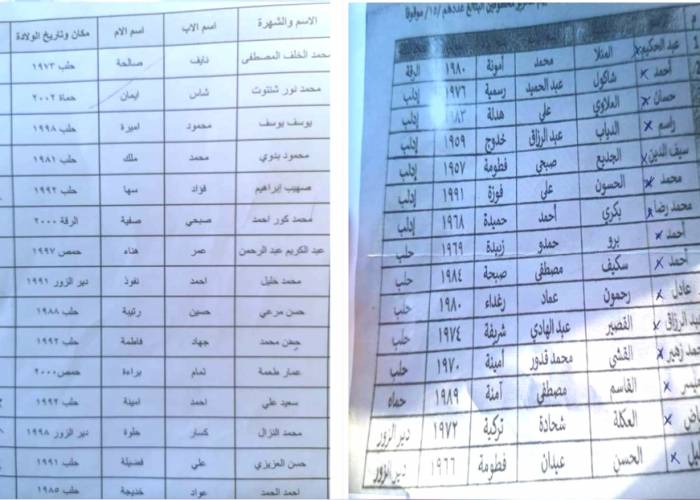 الاسم والشهرة اسم الاب اسم الام مكان وتاريخ الولادة
محمد الخلف المصطفى نايف صالحة حلب ١٩٧٣
محمد نور شنتوت شاس ايمان حماة ٢٠٠٢
يوسف يوسف محمود اميرة حلب ١٩٩٨
محمود بدوي محمد ملك حلب ١٩٨١
صهيب إبراهيم فؤاد سها حلب ١٩٩٢
محمد كور احمد صبحي صفية الرقة ٢٠٠٠
عبد الكريم عبد الرحمن عمر هناء حمص ١٩٩٧
محمد خليل احمد نفوذ دير الزور ١٩٩١
حسن مرعي حسين رتيبة حلب ١٩٨٨
محمد جهاد فاطمة حلب ١٩٩٢
عمار طعمة تمام براءة حمص ٢٠٠٠
سعيد علي احمد امينة حلب ١٩٩٢
محمد النزال كسار حلوة دير الزور ١٩٩٨
حسن العزيزي علي فضيلة حلب ١٩٩١
احمد الحمد عواد خديجة حلب ١٩٨٥
عددهم /١٥/ موقوفا
عبد الحكيم المنلا محمد أمونة ١٩٨٠ الرقة
أحمد شاكول عبد الحميد رسمية ١٩٧٦ إدلب
حسان العلاوي علي هدلة إدلب
راسم الدياب عبد الرزاق خدوج ١٩٥٩ إدلب
سيف الدين الجديع صبحي فطومة ١٩٥٧ إدلب
محمد الحسون علي فوزة ١٩٩١ إدلب
محمد رضا بكري أحمد حميدة ١٩٦٨ إدلب
أحمد برو حمدو زبيدة ١٩٦٩ حلب
أحمد سكيف مصطفى صبحة ١٩٨٤ حلب
عادل رحمون عماد رغداء ١٩٨٠ حلب
عبد الرزاق القصير عبد الهادي شريفة ١٩٧٤ حلب
زهير القشي محمد قدور أمينة ١٩٧٠ حلب
القاسم مصطفى آمنة ١٩٨٩ حماه
العكلة شحادة تركية ١٩٧٢ دير الزور
الحسن عبدان فطومة ١٩٦٦ دير الزور